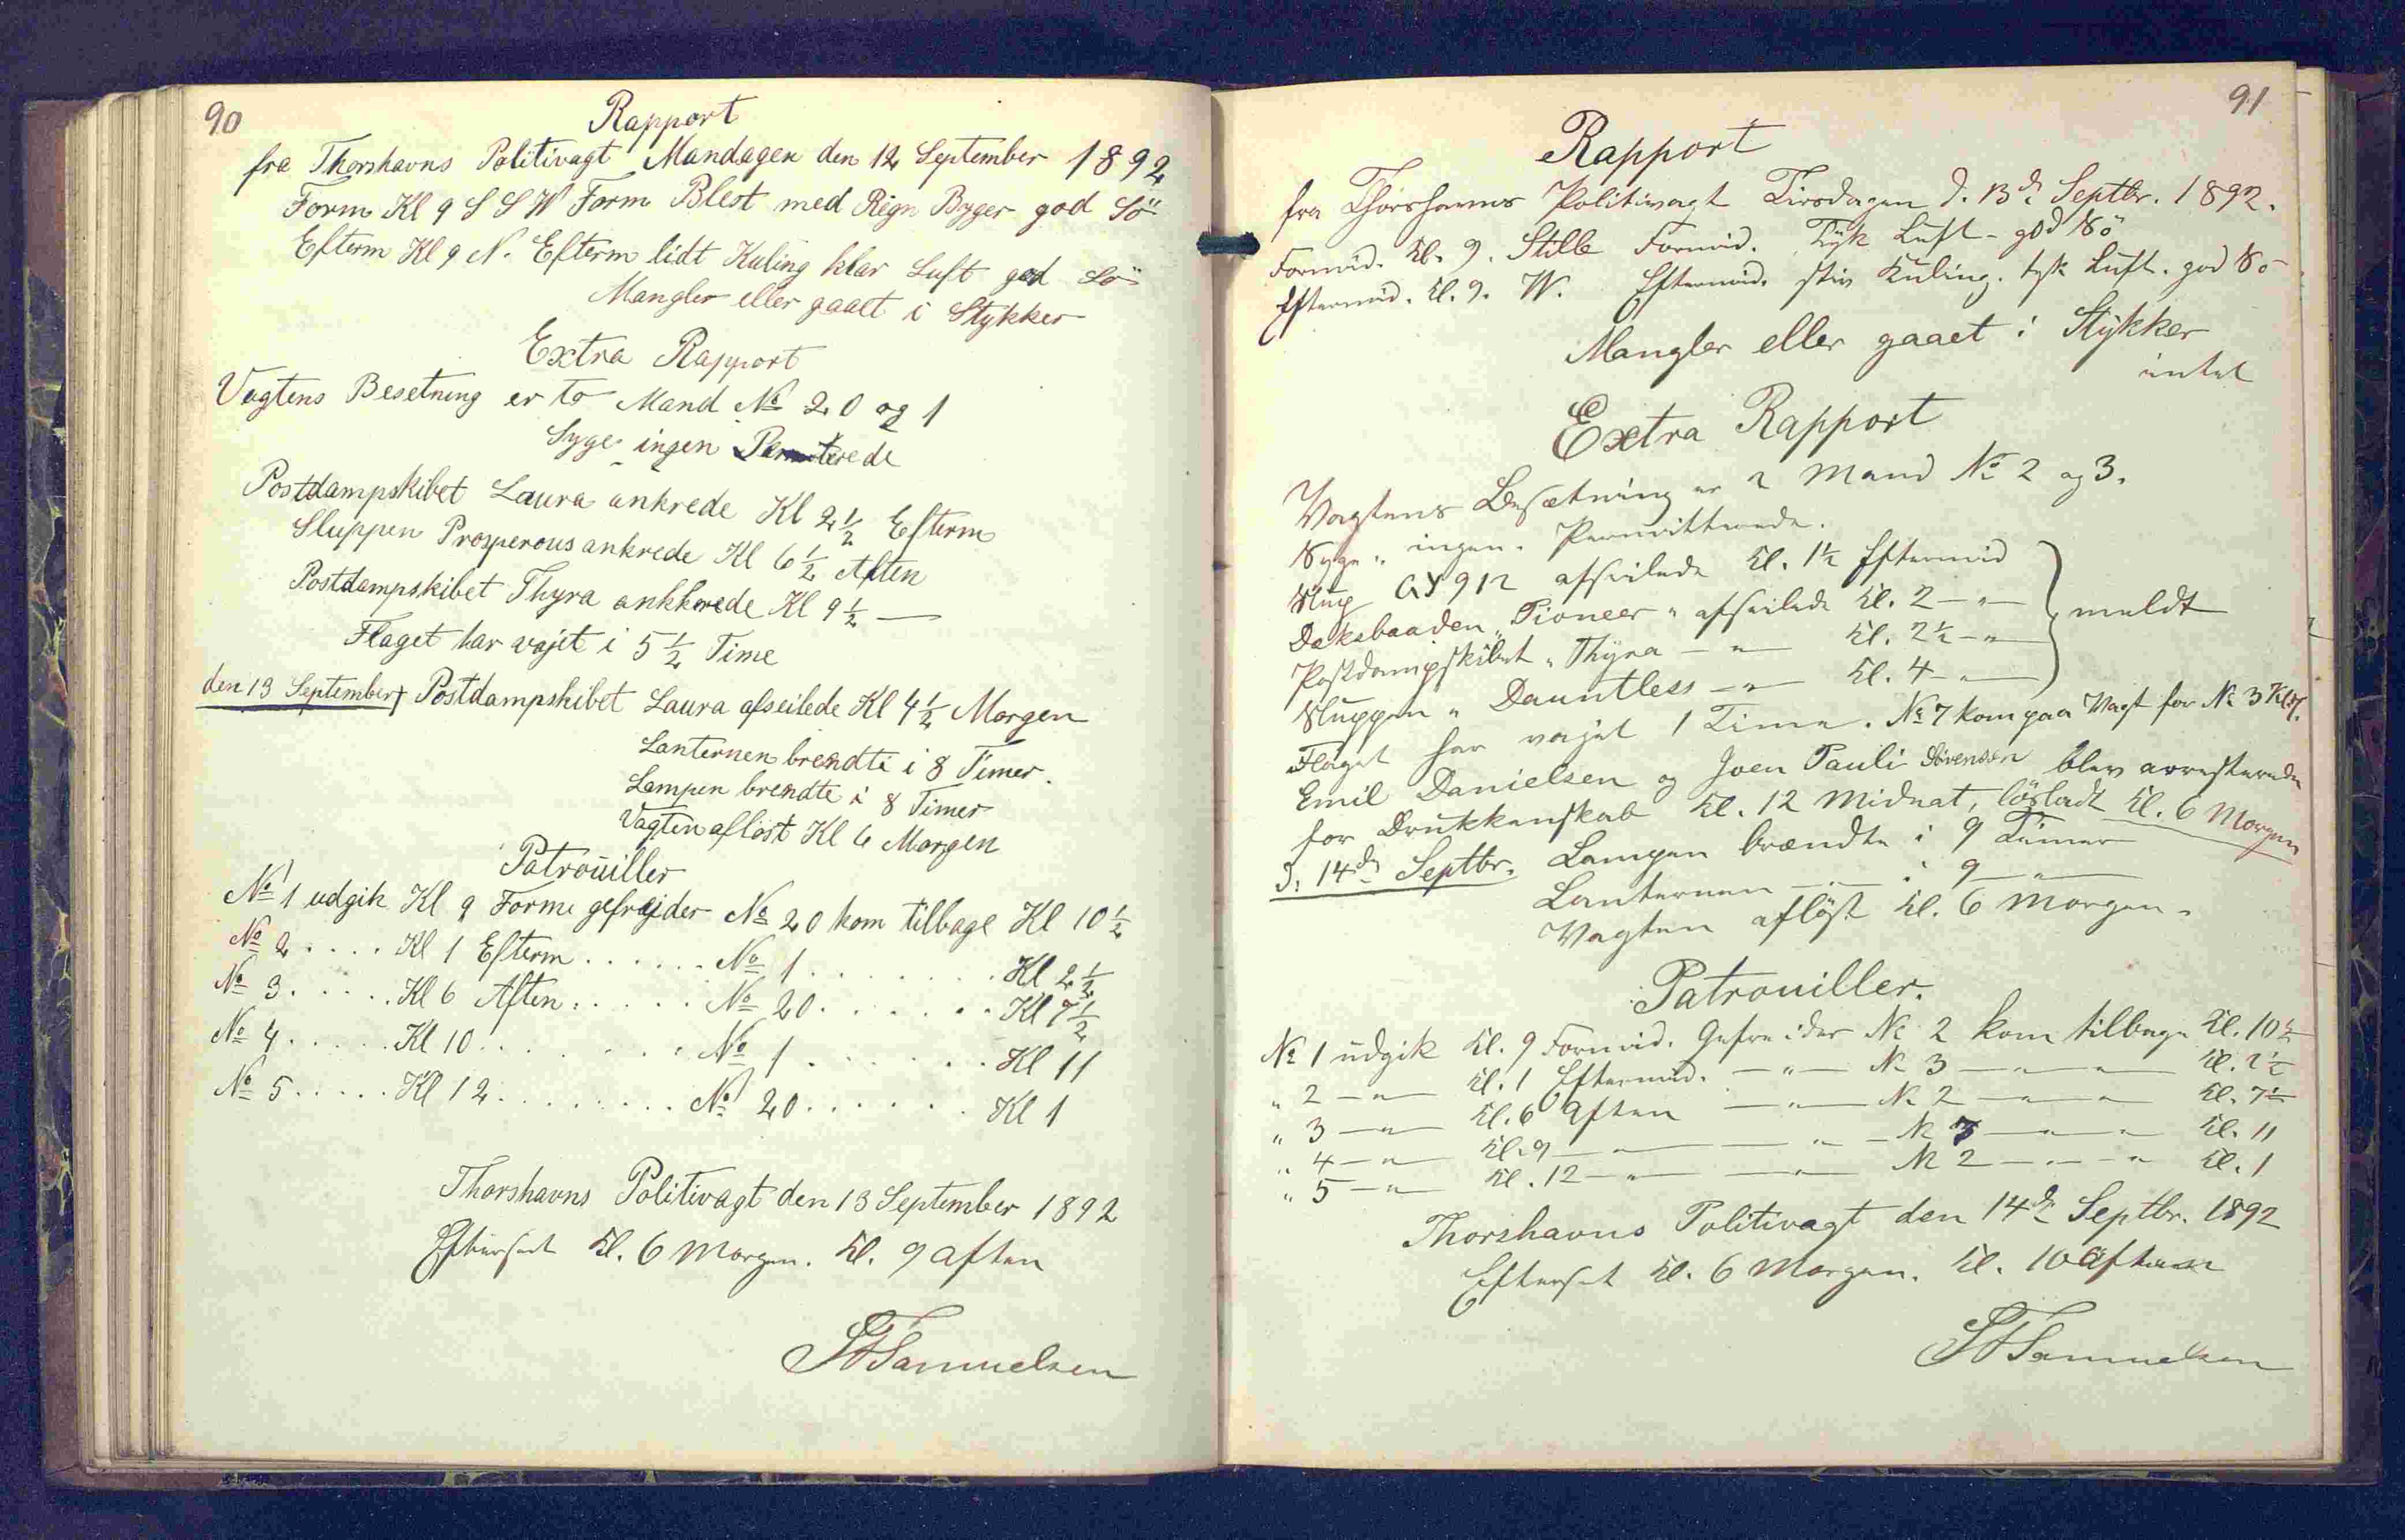 90
Rapport
fra Thorshavns Politivagt Mandagen den 12 September 1892
Form Kl 9 S S W Form Blest med Regn Byger god Sö
Efterm Kl 9 N. Efterm lidt Kuling klar Luft god Sö
Mangler eller gaaet i Stykker
Extra Rapport
Vagtens Besetning er to Mand No 20 og 1
Syge ingen Permiterede
Postdampskibet Laura ankrede Kl 2½ Efterm
Sluppen Prosperous ankrede Kl 6½ Aften
Postdampskibet Thyra ankkrede Kl 9½ —
Flaget har vajet i 5½ Time
den 13 September Postdampskibet Laura afseilede Kl 4½ Morgen
Lanternen brendte i 8 Timer.
Lampen brendte i 8 Timer
Vagten aflöst Kl 6 Morgen
Patrouiller
No 1 udgik Kl 9 Forme gefrejder No 20 kom tilbage Kl 10½
No 2 .... Kl 1 Efterm ...... No 1 ....... Kl 2½
No 3 ..... Kl 6 Aften ..... No 20 ...... Kl 7½
No 4 ..... Kl 10 ....... No 1 ...... Kl 11
No 5 ..... Kl 12 ........ No 20 ...... Kl 1
Thorshavns Politivagt den 13 September 1892
Efterseet Kl. 6 Morgen. Kl. 9 Aften
Samuelsen
91
Rapport
fra Thorshavns Politivagt Tirsdagen d. 13d Septbr. 1892.
Formid. Kl. 9. Stille Formid. Tyk Luft - god Sö
Eftermid. Kl. 9. W. Eftermid. stiv Kuling. tyk Luft. god Sö
Mangler eller gaaet i Stykker
intet
Extra Rapport
Vagtens Besætning er 2 Mand No 2 og 3.
Syge „ ingen. Permitterede.
Slup GY 912 afseilede Kl. 1½ Eftermid
Deksbaaden „Pioneer„ afseilede Kl. 2 — „ — meldt
Postdampskibet „Thyra — „ — Kl. 2½ — „
Sluppen „ Dauntless — „ — Kl. 4 — „ —
Flaget har vajet 1 Time. No 7 kom paa Vagt for No 3 Kl
Emil Danielsen og Joen Pauli Sörensen blev arresterede
for Drukkenskab Kl. 12 Midnat, lösladt Kl. 6 Morgen
d. 14d Septbr. Lampen brændte i 9 Timer
Lanternen — „ — i 9 — „ —
Vagten aflöst Kl. 6 Morgen.
Patrouiller.
No 1 udgik Kl. 9 Formid. Gefreider No 2 kom tilbage Kl. 10½
„ 2 — „ — Kl. 1 Eftermid. — „ — No 3 — „ — „ — Kl. 2½
„ 3 — „ — Kl. 6 Aften — „ — No 2 — „ — „ Kl. 7½
„ 4 — „ — Kl. 9 — „ — „ — No 3 — „ — „ Kl. 11
„ 5 — „ — Kl. 12 — „ — „ — No 2 — „ — „ Kl. 1
Thorshavns Politivagt den 14d Septbr. 1892
Efterset Kl. 6 Morgen. Kl. 10 Aften
Samuelsen